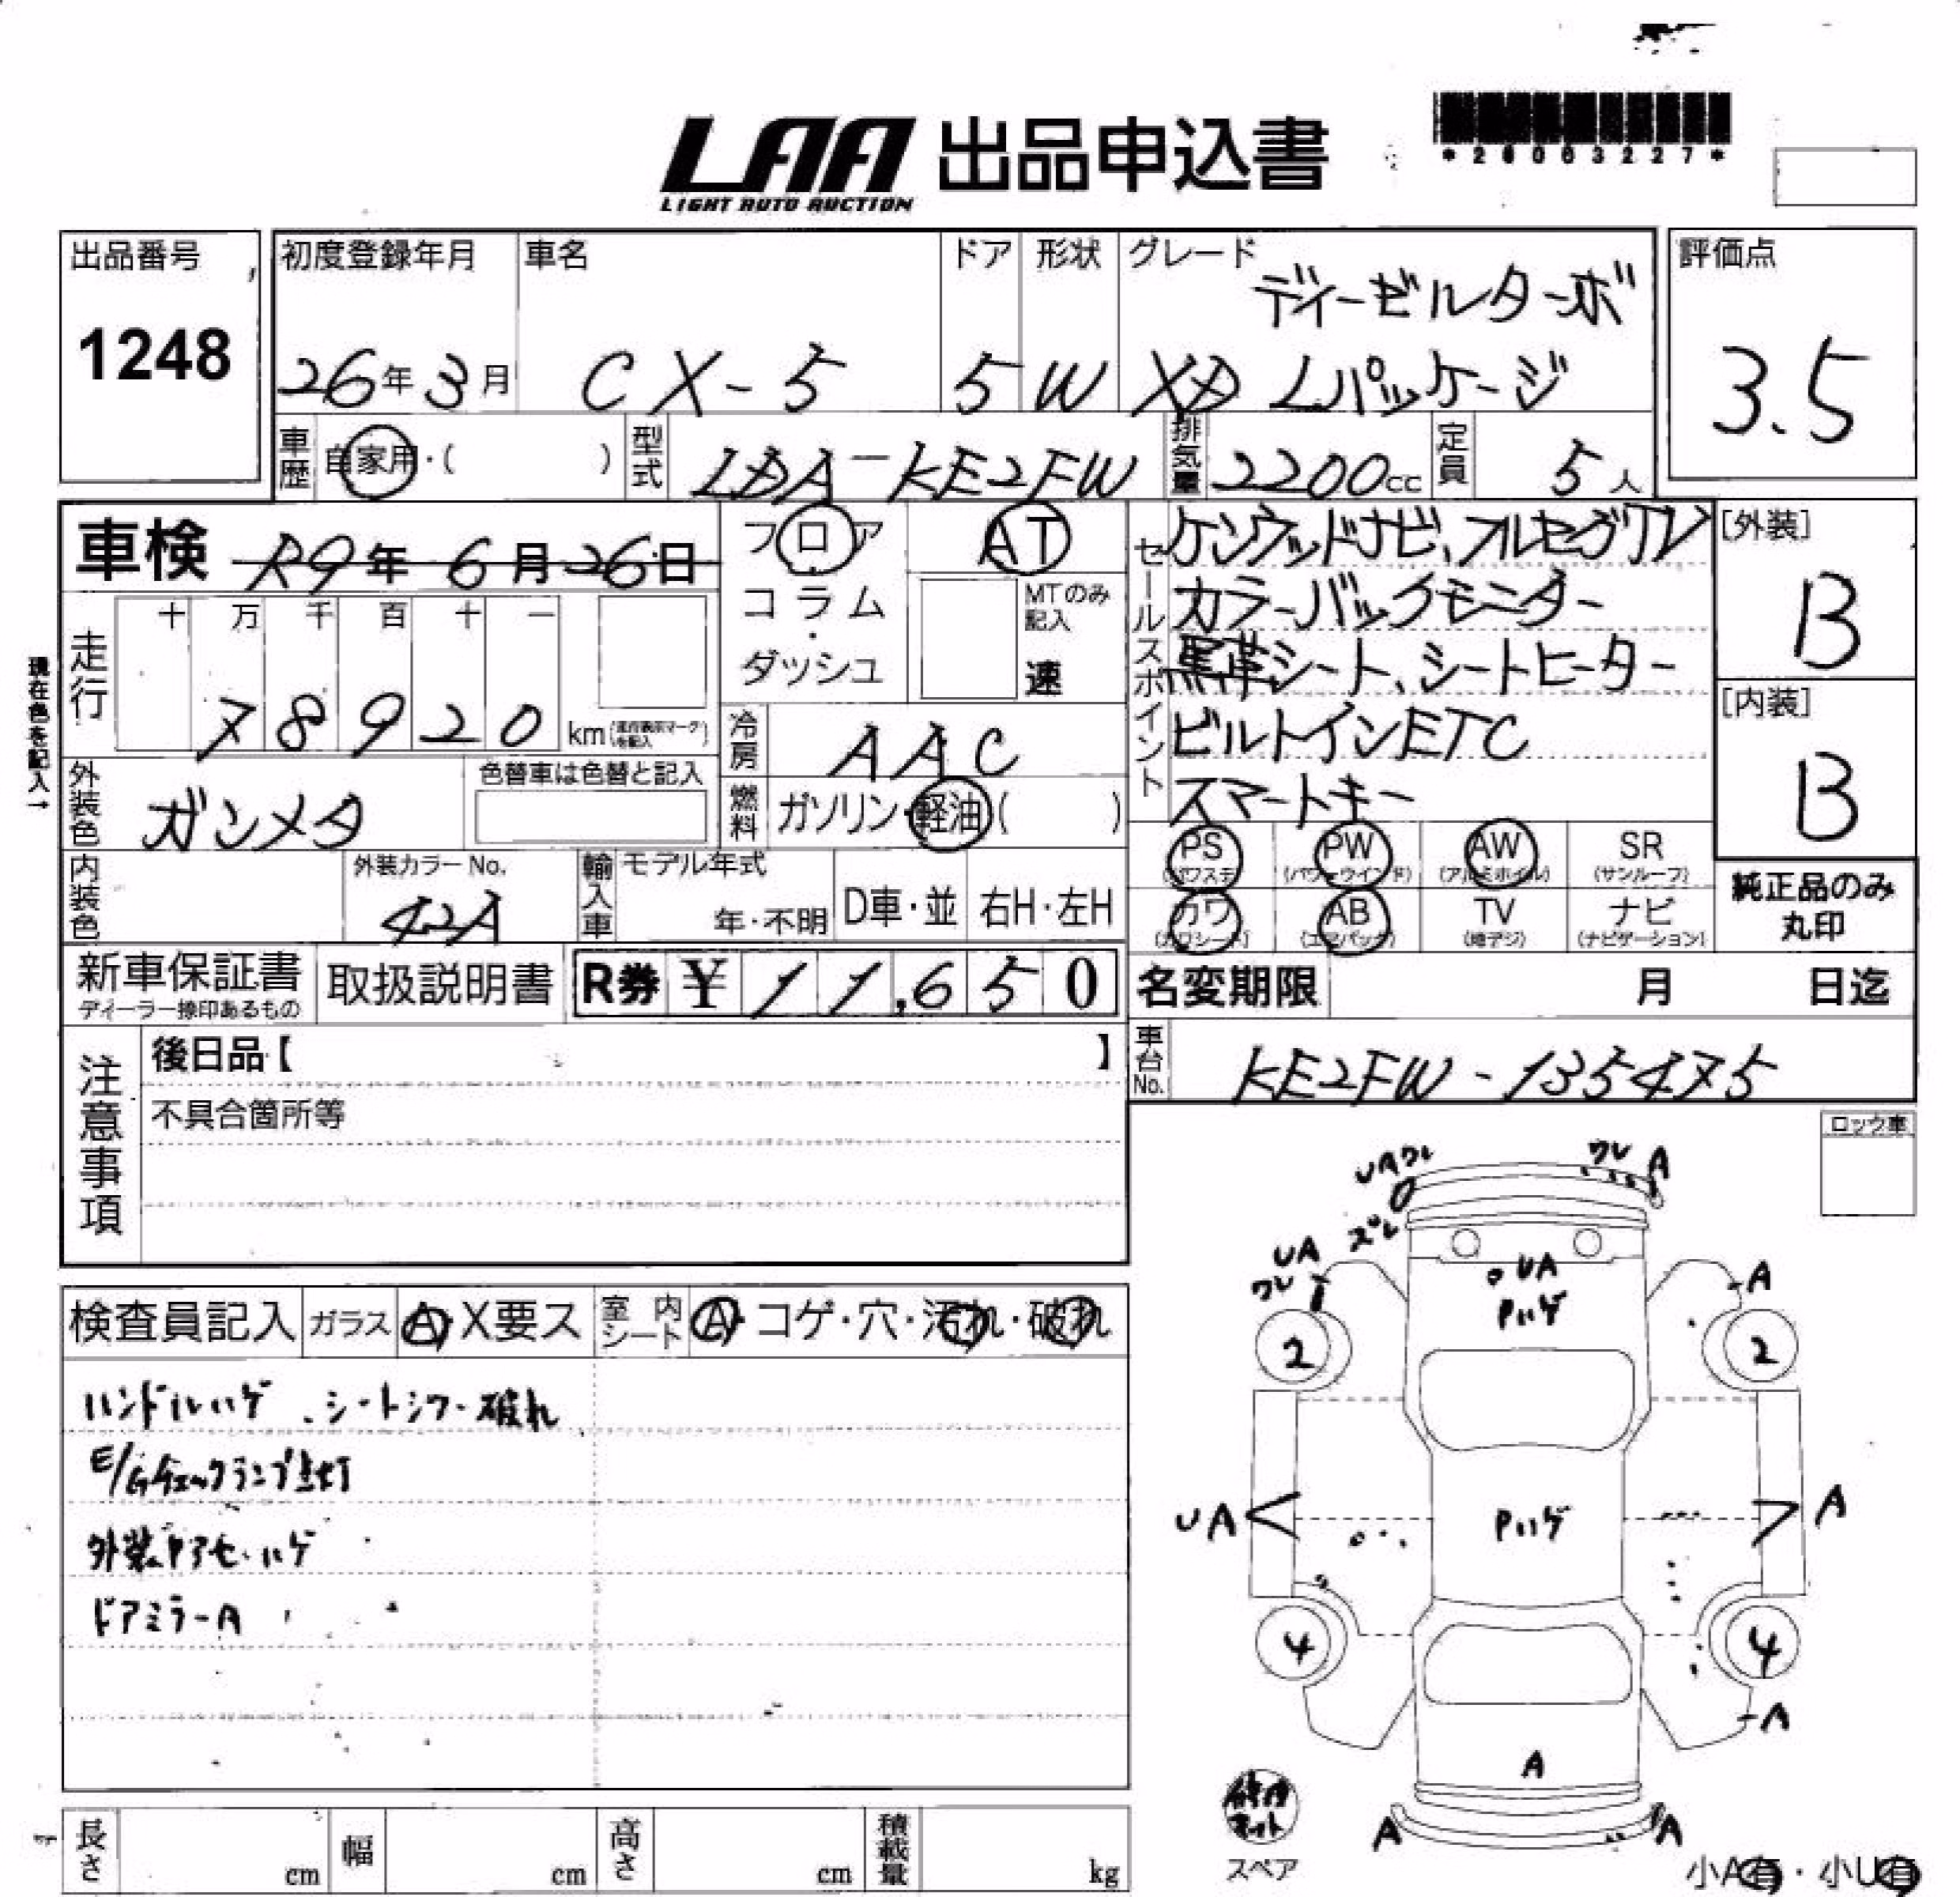 *26003227*
LAA 出品申込書
LIGHT AUTO AUCTION
出品番号
1248
初度登録年月
26年3月
車名
CX-5
ドア
5
形状
W
グレード
ディーゼルターボ
XD Lパッケージ
評価点
3.5
車歴
自家用・( )
型式
LDA-KE2FW
排気量
2200cc
定員
5人
車検 R9年6月26日
フロア
・
コラム
・
ダッシュ
AT
MTのみ
記入
速
セールスポイント
ケンウッドナビ、フルセグTV
カラーバックモニター
黒革シート、シートヒーター
ビルトインETC
スマートキー
[外装]
B
[内装]
B
現在色を記入→
走行
十 万 千 百 十 一
78920
km(走行表示マークを記入)
冷房
AAC
外装色
ガンメタ
色替車は色替と記入
燃料
ガソリン・軽油( )
PS
(パワステ)
PW
(パワーウインド)
AW
(アルミホイル)
SR
(サンルーフ)
カワ
(カワシート)
AB
(エアバッグ)
TV
(地デジ)
ナビ
(ナビゲーション)
純正品のみ
丸印
内装色
外装カラーNo.
42A
輸入車
モデル年式
年・不明
D車・並
右H・左H
新車保証書
ディーラー捺印あるもの
取扱説明書
R券 ¥11,650
名変期限 月 日迄
注意事項
後日品【 】
不具合箇所等
車台No.
KE2FW-135475
ロック車
検査員記入
ガラス
A・X要ス
室内シート
A・コゲ・穴・汚れ・破れ
ハンドルハゲ、シートシワ・破れ
E/Gチェックランプ点灯
外装ヤケ・ハゲ
ドアミラーA
UAワレ
ワレ A
ズレ
UA
ワレ
UA
Pハゲ
A
2
2
UA
Pハゲ
A
4
4
A
A
修理キット
スペア
A
A
小A有・小U有
長さ cm
幅 cm
高さ cm
積載量 kg